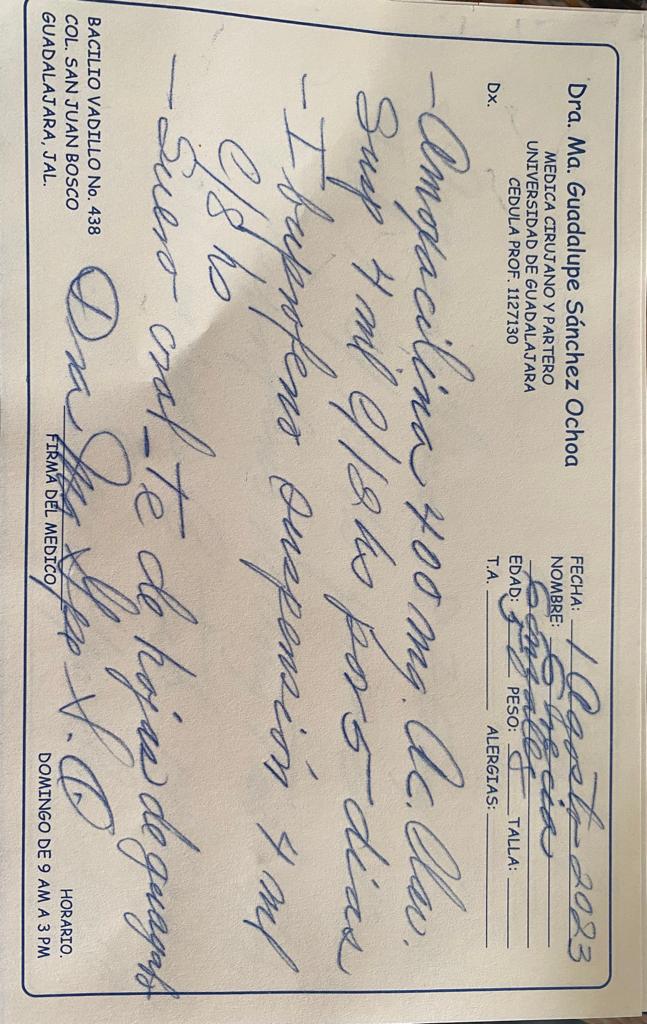 Dra. Ma. Guadalupe Sánchez Ochoa
MEDICA CIRUJANO Y PARTERO
UNIVERSIDAD DE GUADALAJARA
CEDULA PROF. 1127130
FECHA: 1 Agosto 2023
NOMBRE: Grecia
González
EDAD: PESO: TALLA:
T.A. ALERGIAS:
Dx.
- Amoxacilina 400 mg. Ac. Clav.
Susp 4 ml c/12 hs por 5 dias
- Ibuprofeno suspensión 4 ml
c/8 hs
- Suero oral - Te de hojas de guayabo
BACILIO VADILLO No. 438
COL. SAN JUAN BOSCO
GUADALAJARA, JAL.
Dra
FIRMA DEL MEDICO
HORARIO.
DOMINGO DE 9 AM A 3 PM